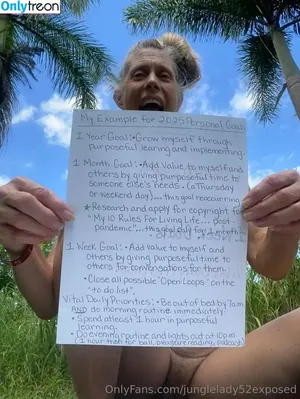 Onlytreon
My Example for 2025 Personal Goals
1 Year Goal: • Grow myself through
purposeful learing and implementing.
1 Month Goal: • Add value to myself and
others by giving purposeful time to
someone else's needs. (a Thursday
or weekend day)... this goal reoccurring
★ Research and apply for copyright for
"My 10 Rules For Living Life... post-
pandemic"... this goal only for 1 month
1 Week Goal: • Add value to myself and
others by giving purposeful time to
others for conversations for them.
• Close all possible "Open Loops" on the
"to do list".
Vital Daily Priorities: • Be out of bed by 7am
AND do morning routine immediately.
• Spend atleast 1 hour in purposeful
learning.
• Do evening routine and lights out at 10pm.
(1 hour then for ball, pleasure reading, podcast)
OnlyFans.com/junglelady52exposed